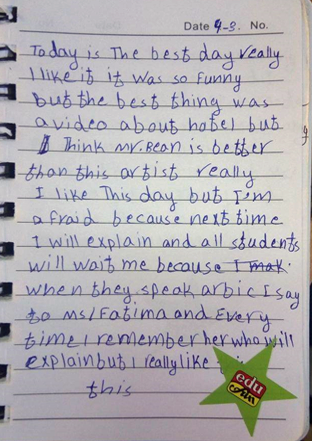 Date 9-3. No.
Today is The best day really
I like it it was so funny
but the best thing was
a video about hotel but
I Think mr.Bean is better
than this artist really
I like This day but I'm
afraid because next time
I will explain and all students
will wait me because I mak
when they speak arbic I say
to ms/Fatima and Every
time I remember her who will
explain but I really like
this
edu